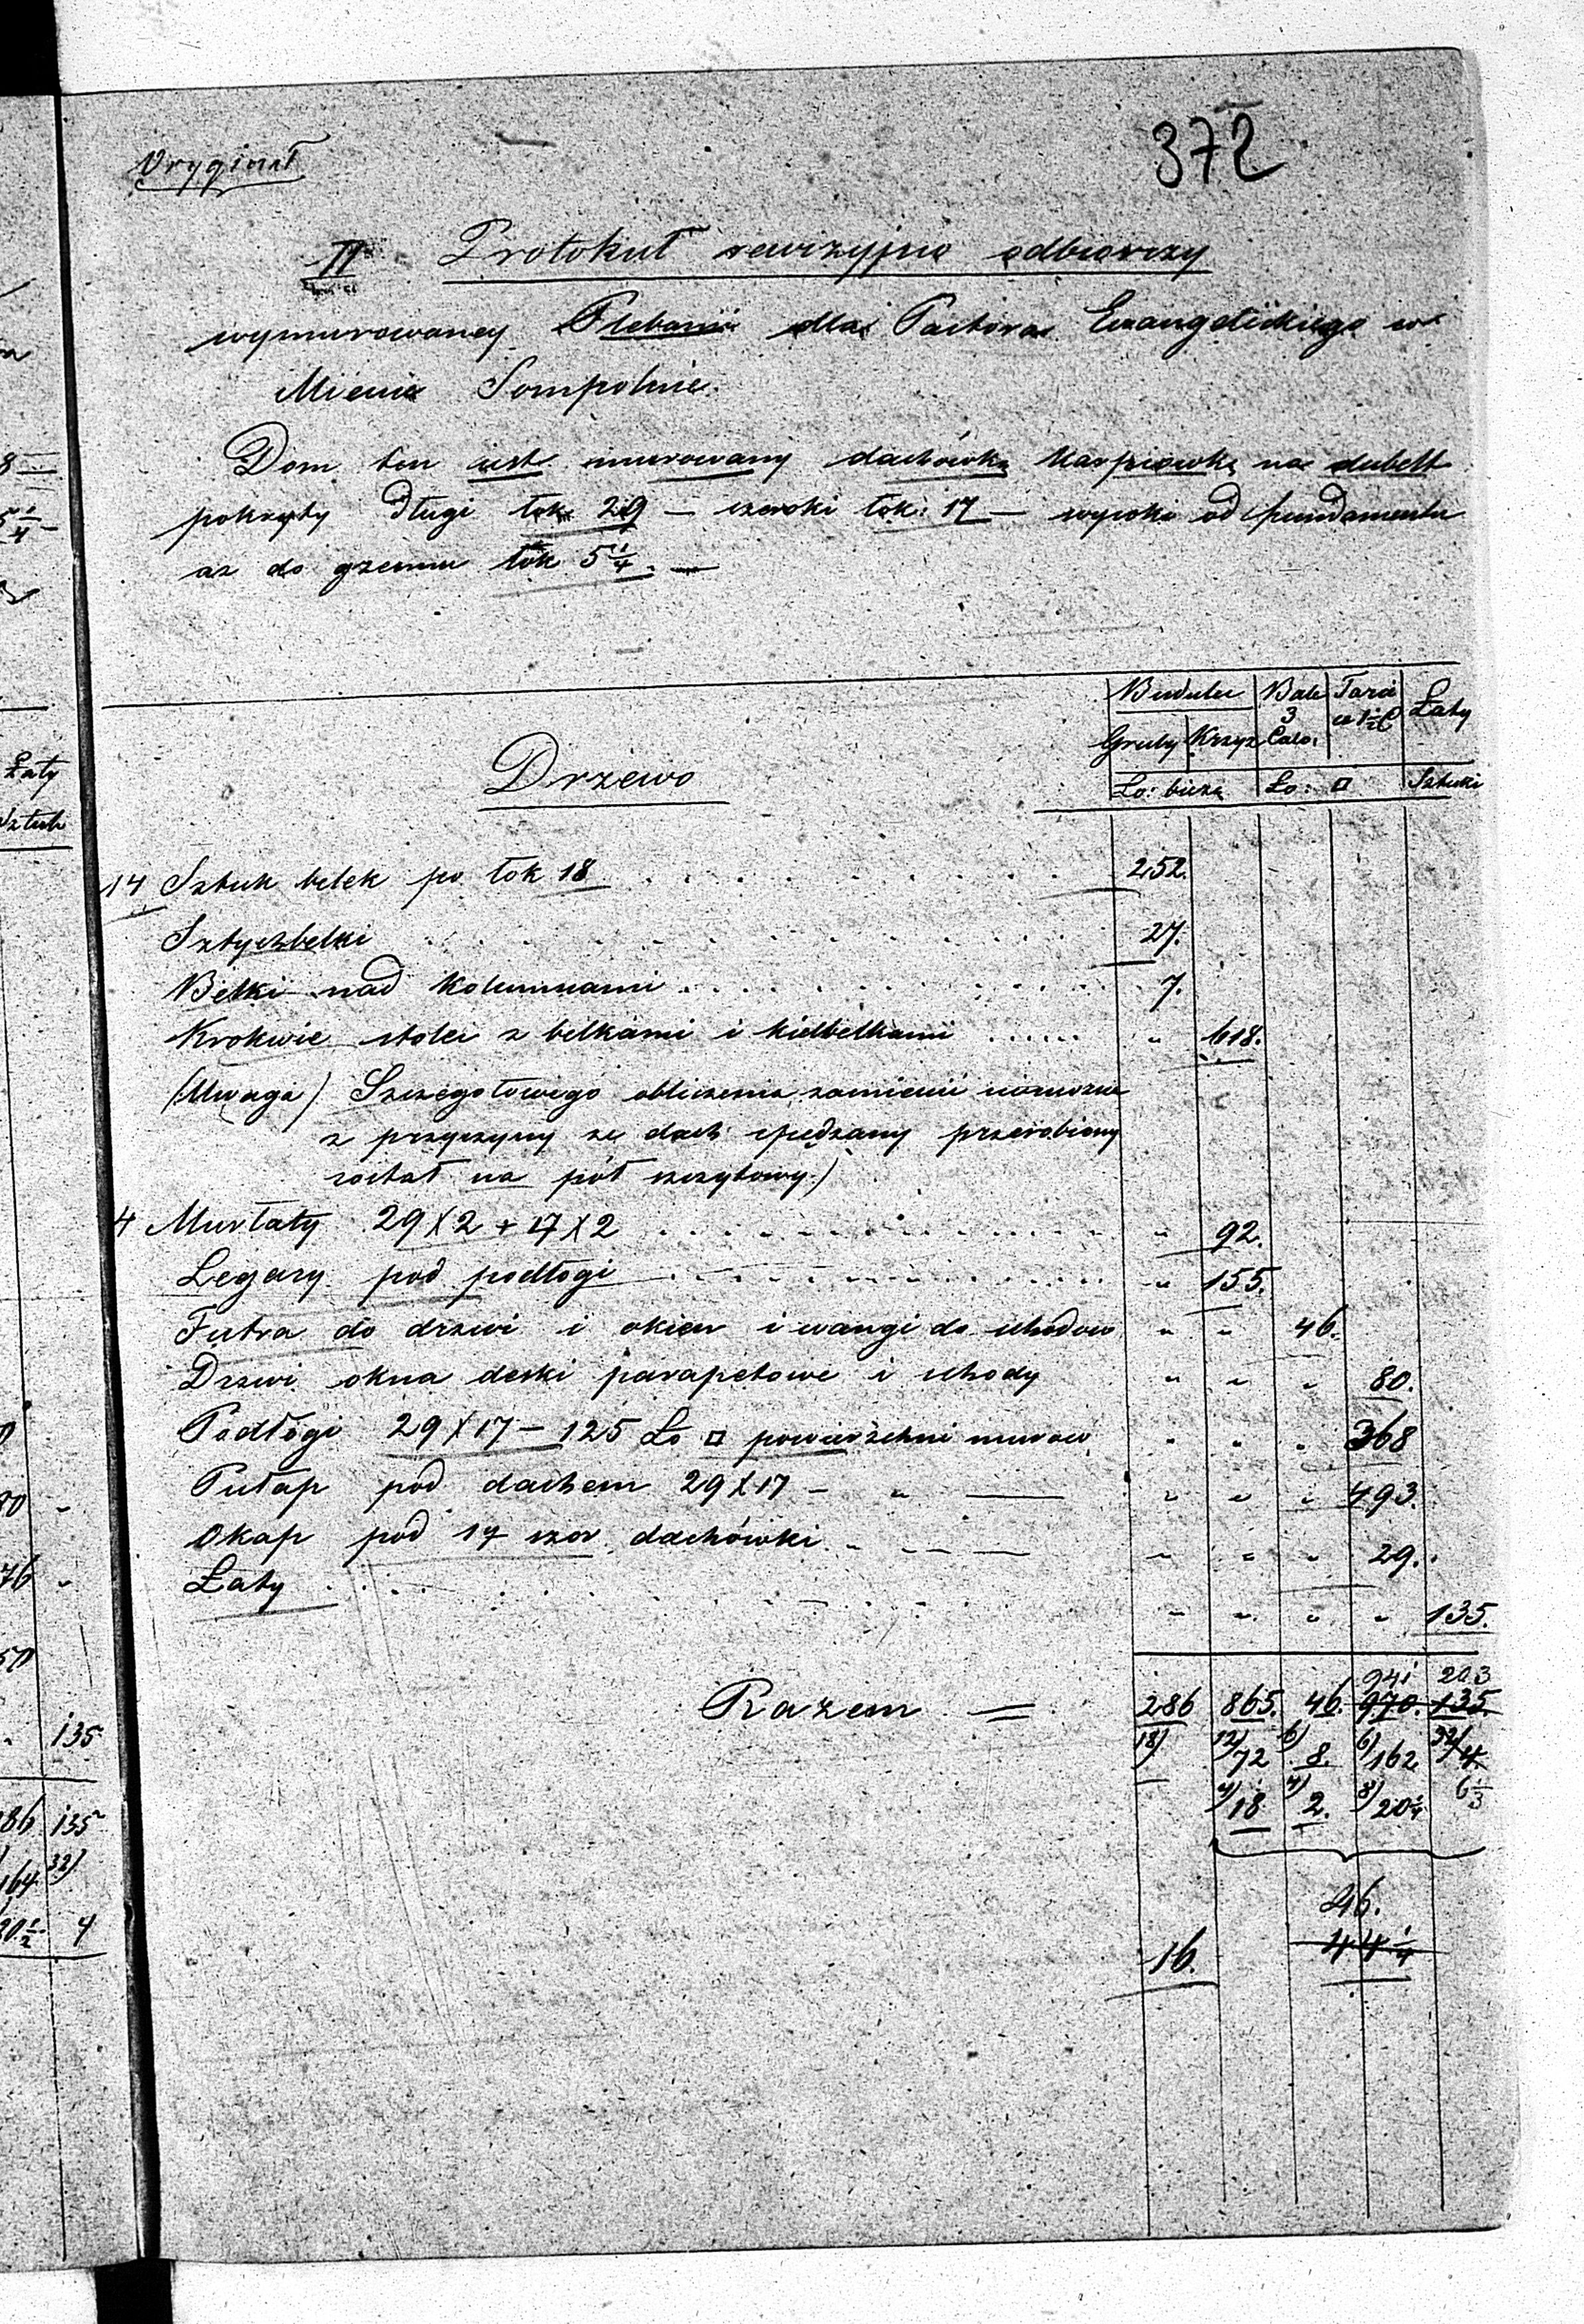 372
Oryginał
II Protokuł rewizyjno odbiorczy
wymurowaney Plebanii dla Pastora Ewangelickiego w
Mieście Sompolnie.
Dom ten jest murowany dachówką karpiowką na dubelt
pokryty długi łok 29 — szeroki łok: 17 — wysoki od fundamentu
aż do gzemsu łok 5 1/4. —
Budulec Bale Tarcic Łaty
3 a 1 1/2 C
Gruby Krzyż Calo:
Drzewo
Ło: bieżą Ło: □ Sztuki
14 Sztuk belek po łok 18 . . . . . . . 252.
Sztychbelki . . . . . . . 27.
Belki nad kolumnami . . . . . . . 7.
Krokwie stolec z belkami i kielbelkami . . . . . . „ 618.
(Uwaga) Szczegołowego obliczenia
z przyczyny że dach przerobiony
został na pół szczytowy.)
4 Murłaty 29 X 2 + 17 X 2 . . . . . . . „ 92.
Legary pod podłogi . . . . . . . „ 155.
Futra do drzwi i okien i wangi do schodow „ „ 46.
Drzwi okna deski parapetowe i schody „ „ „ 80.
Podłogi 29 X 17 — 125 Ło □ powierzchni murow „ „ „ 368
Pułap pod dachem 29 X 17 — „ — „ „ „ 493.
Okap pod 17 szor dachówki — „ „ „ 29.
Łaty . . . . . . . „ „ „ „ 135.
941 203
Razem = 286 865. 46. 970. 135.
18) 12) 72 6) 8. 6) 162 32) 4
4) 18 4) 2. 8) 20 1/4 6 1/3
46.
16. 44 1/4
Łaty
Sztuk
135
86 135
164 32)
20 1/2 4